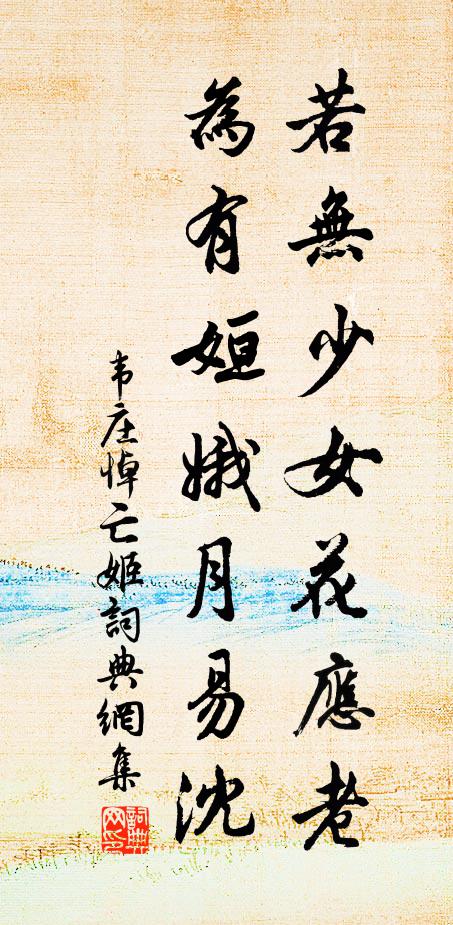 若無少女花應老
為有姮娥月易沈
韦庄悼亡姬詞典網集
詞典网印